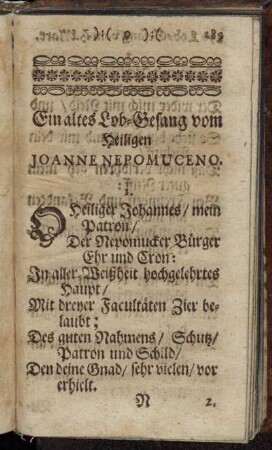 ):( o ):( 289
Ein altes Lob-Gesang vom
Heiligen
JOANNE NEPOMUCENO.
I.
O Heiliger Johannes / mein
Patron /
Der Nepomucker Bürger
Ehr und Cron:
In aller Weißheit hochgelehrtes
Haupt /
Mit dreyer Facultäten Zier be-
laubt;
Des guten Nahmens / Schutz /
Patron und Schild /
Den deine Gnad / sehr vielen / vor
erhielt.
N 2.